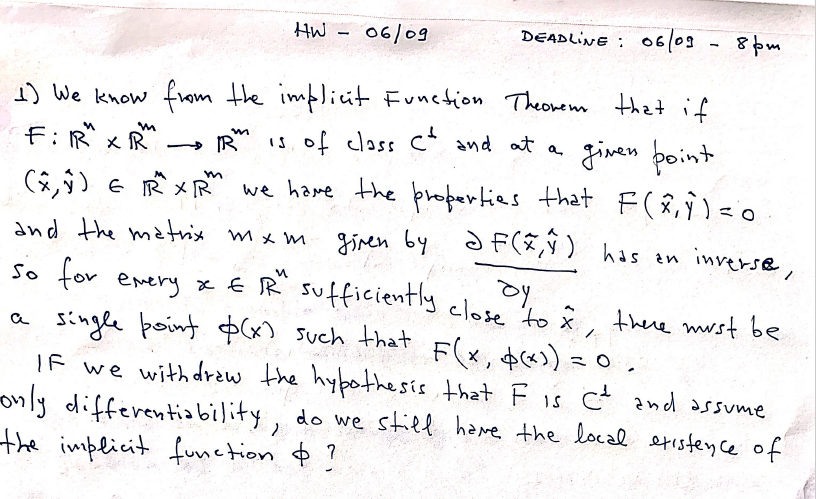 HW - 06/09
DEADLINE: 06/09 - 8pm
1) We know from the implicit Function Theorem that if
F: ℝⁿ × ℝᵐ → ℝᵐ is of class C¹ and at a given point
(x̂, ŷ) ∈ ℝⁿ × ℝᵐ we have the properties that F(x̂, ŷ) = 0
and the matrix m × m given by ∂F(x̂, ŷ)/∂y has an inverse,
so for every x ∈ ℝⁿ sufficiently close to x̂, there must be
a single point ϕ(x) such that F(x, ϕ(x)) = 0.
IF we withdraw the hypothesis that F is C¹ and assume
only differentiability, do we still have the local existence of
the implicit function ϕ?